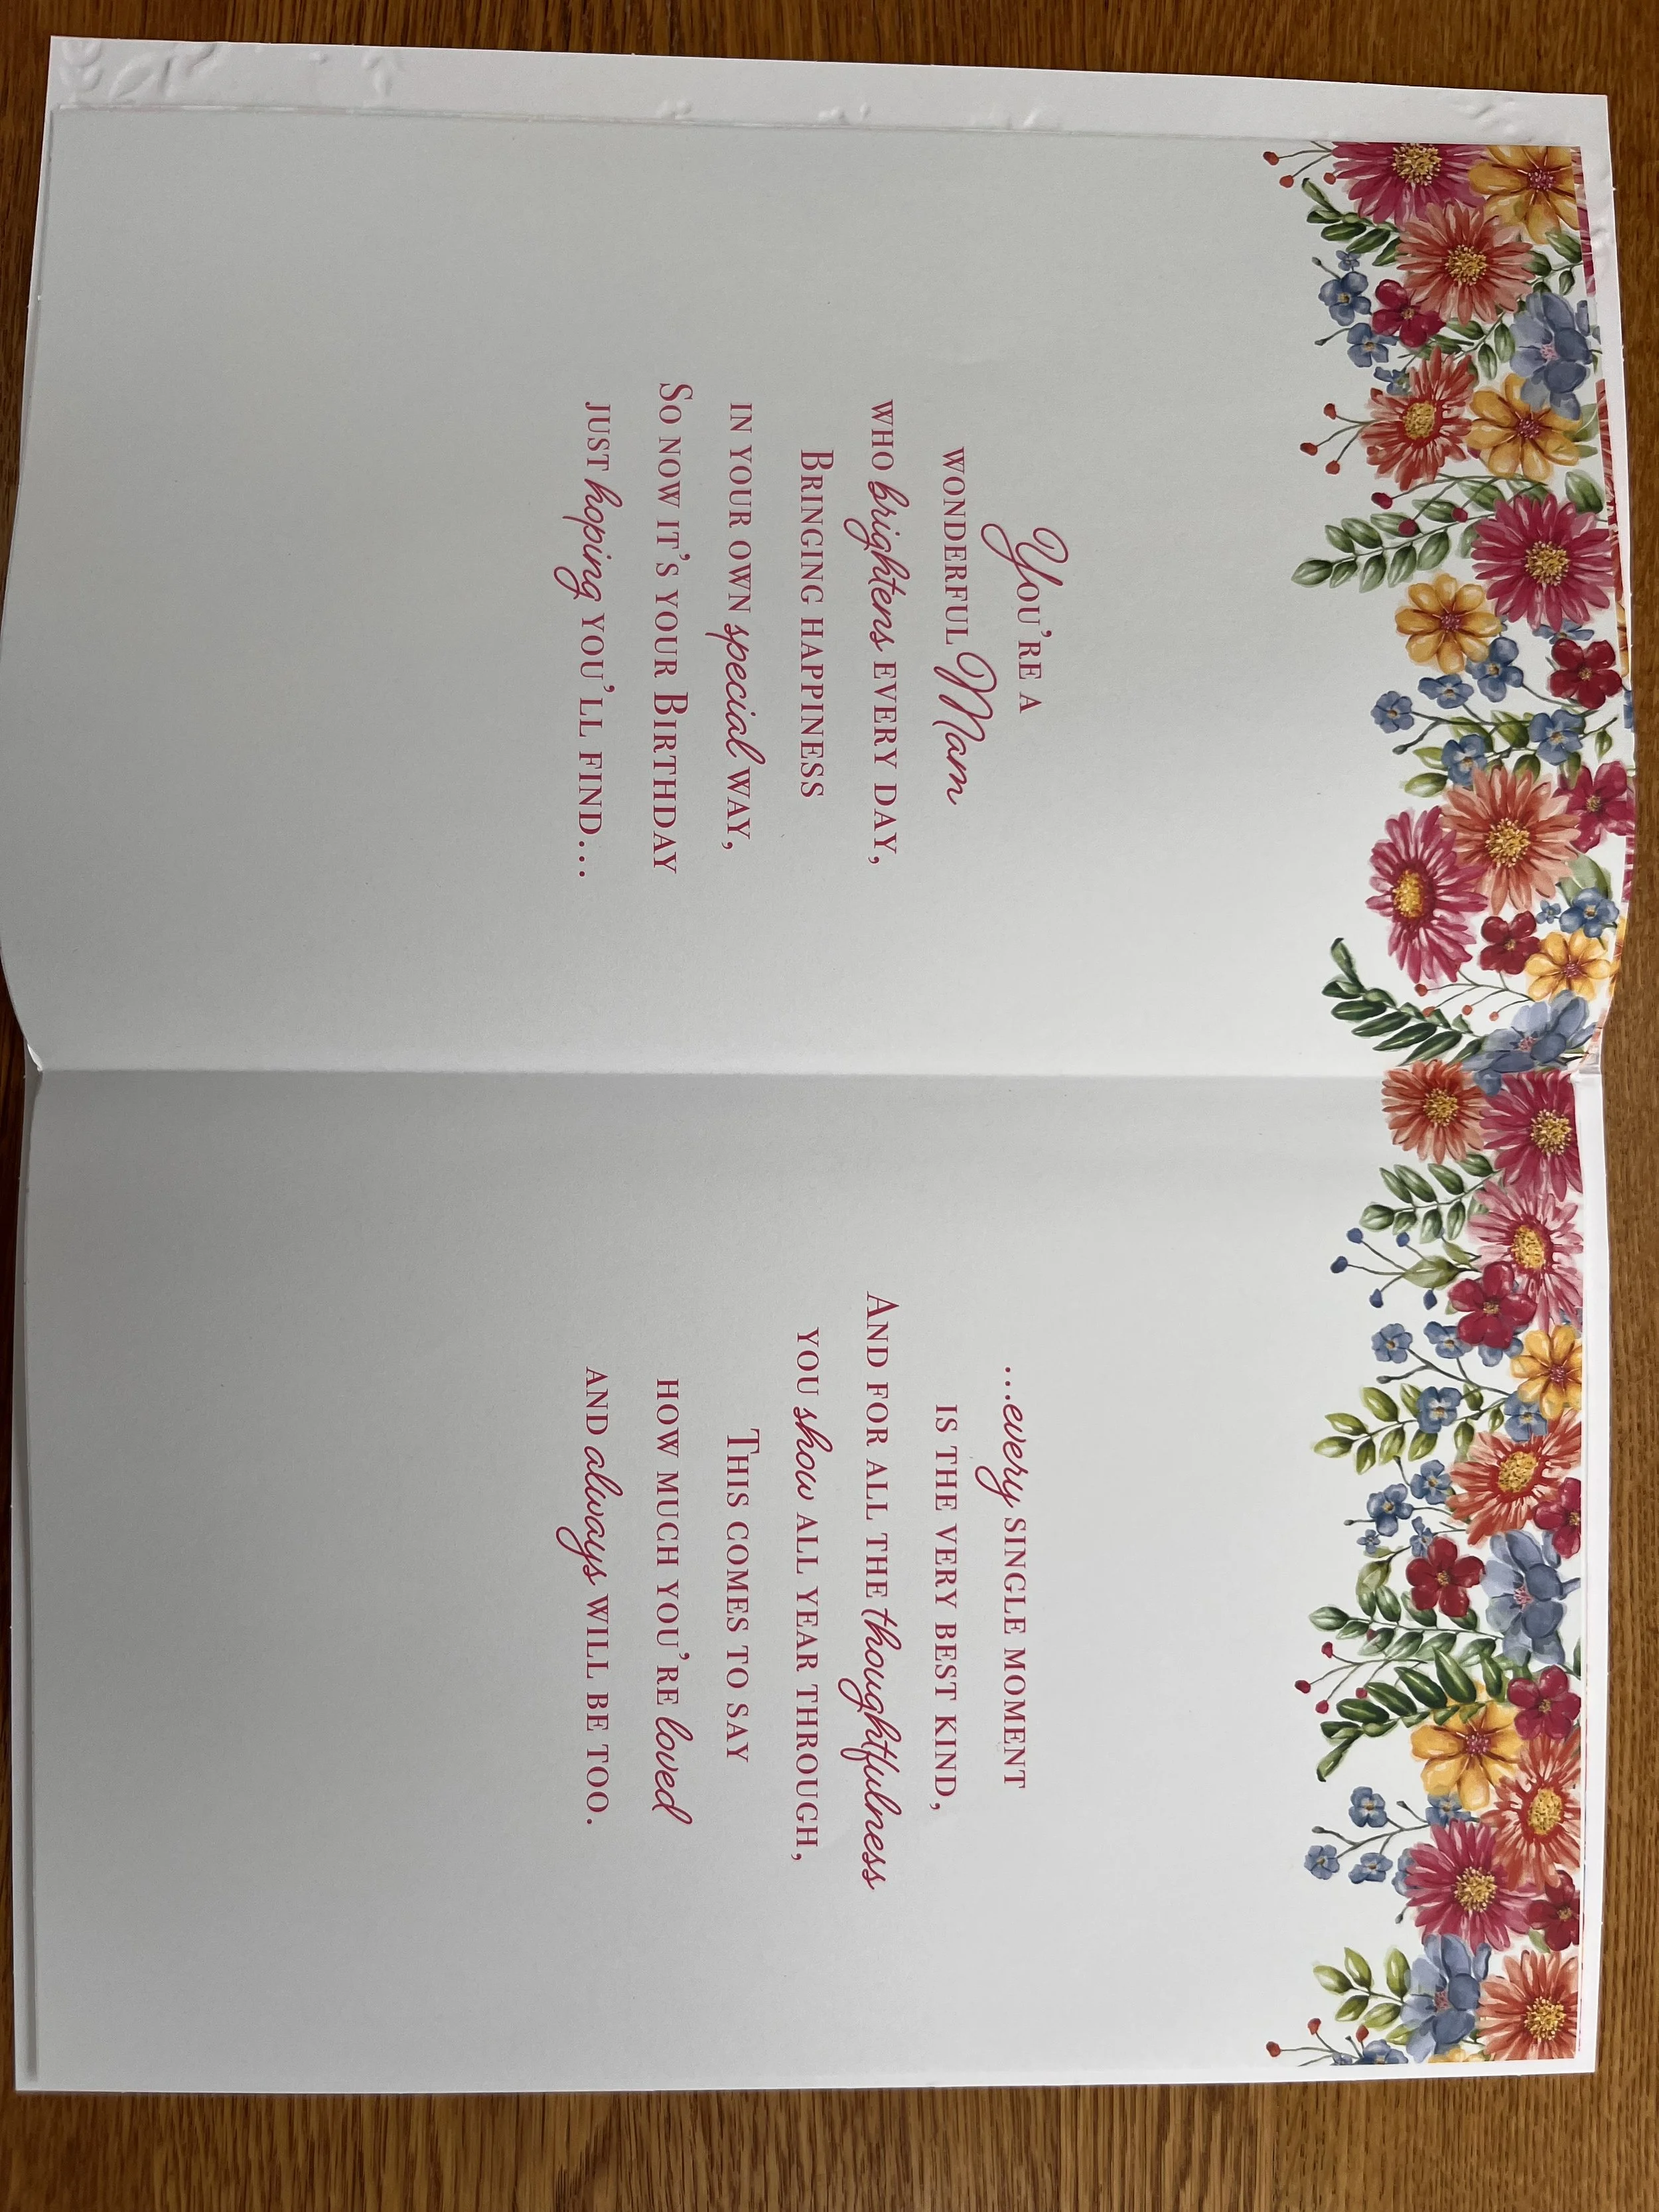 You're a
wonderful Mam
who brightens every day,
Bringing happiness
in your own special way,
So now it's your Birthday
just hoping you'll find...
...every single moment
is the very best kind,
And for all the thoughtfulness
you show all year through,
This comes to say
how much you're loved
and always will be too.